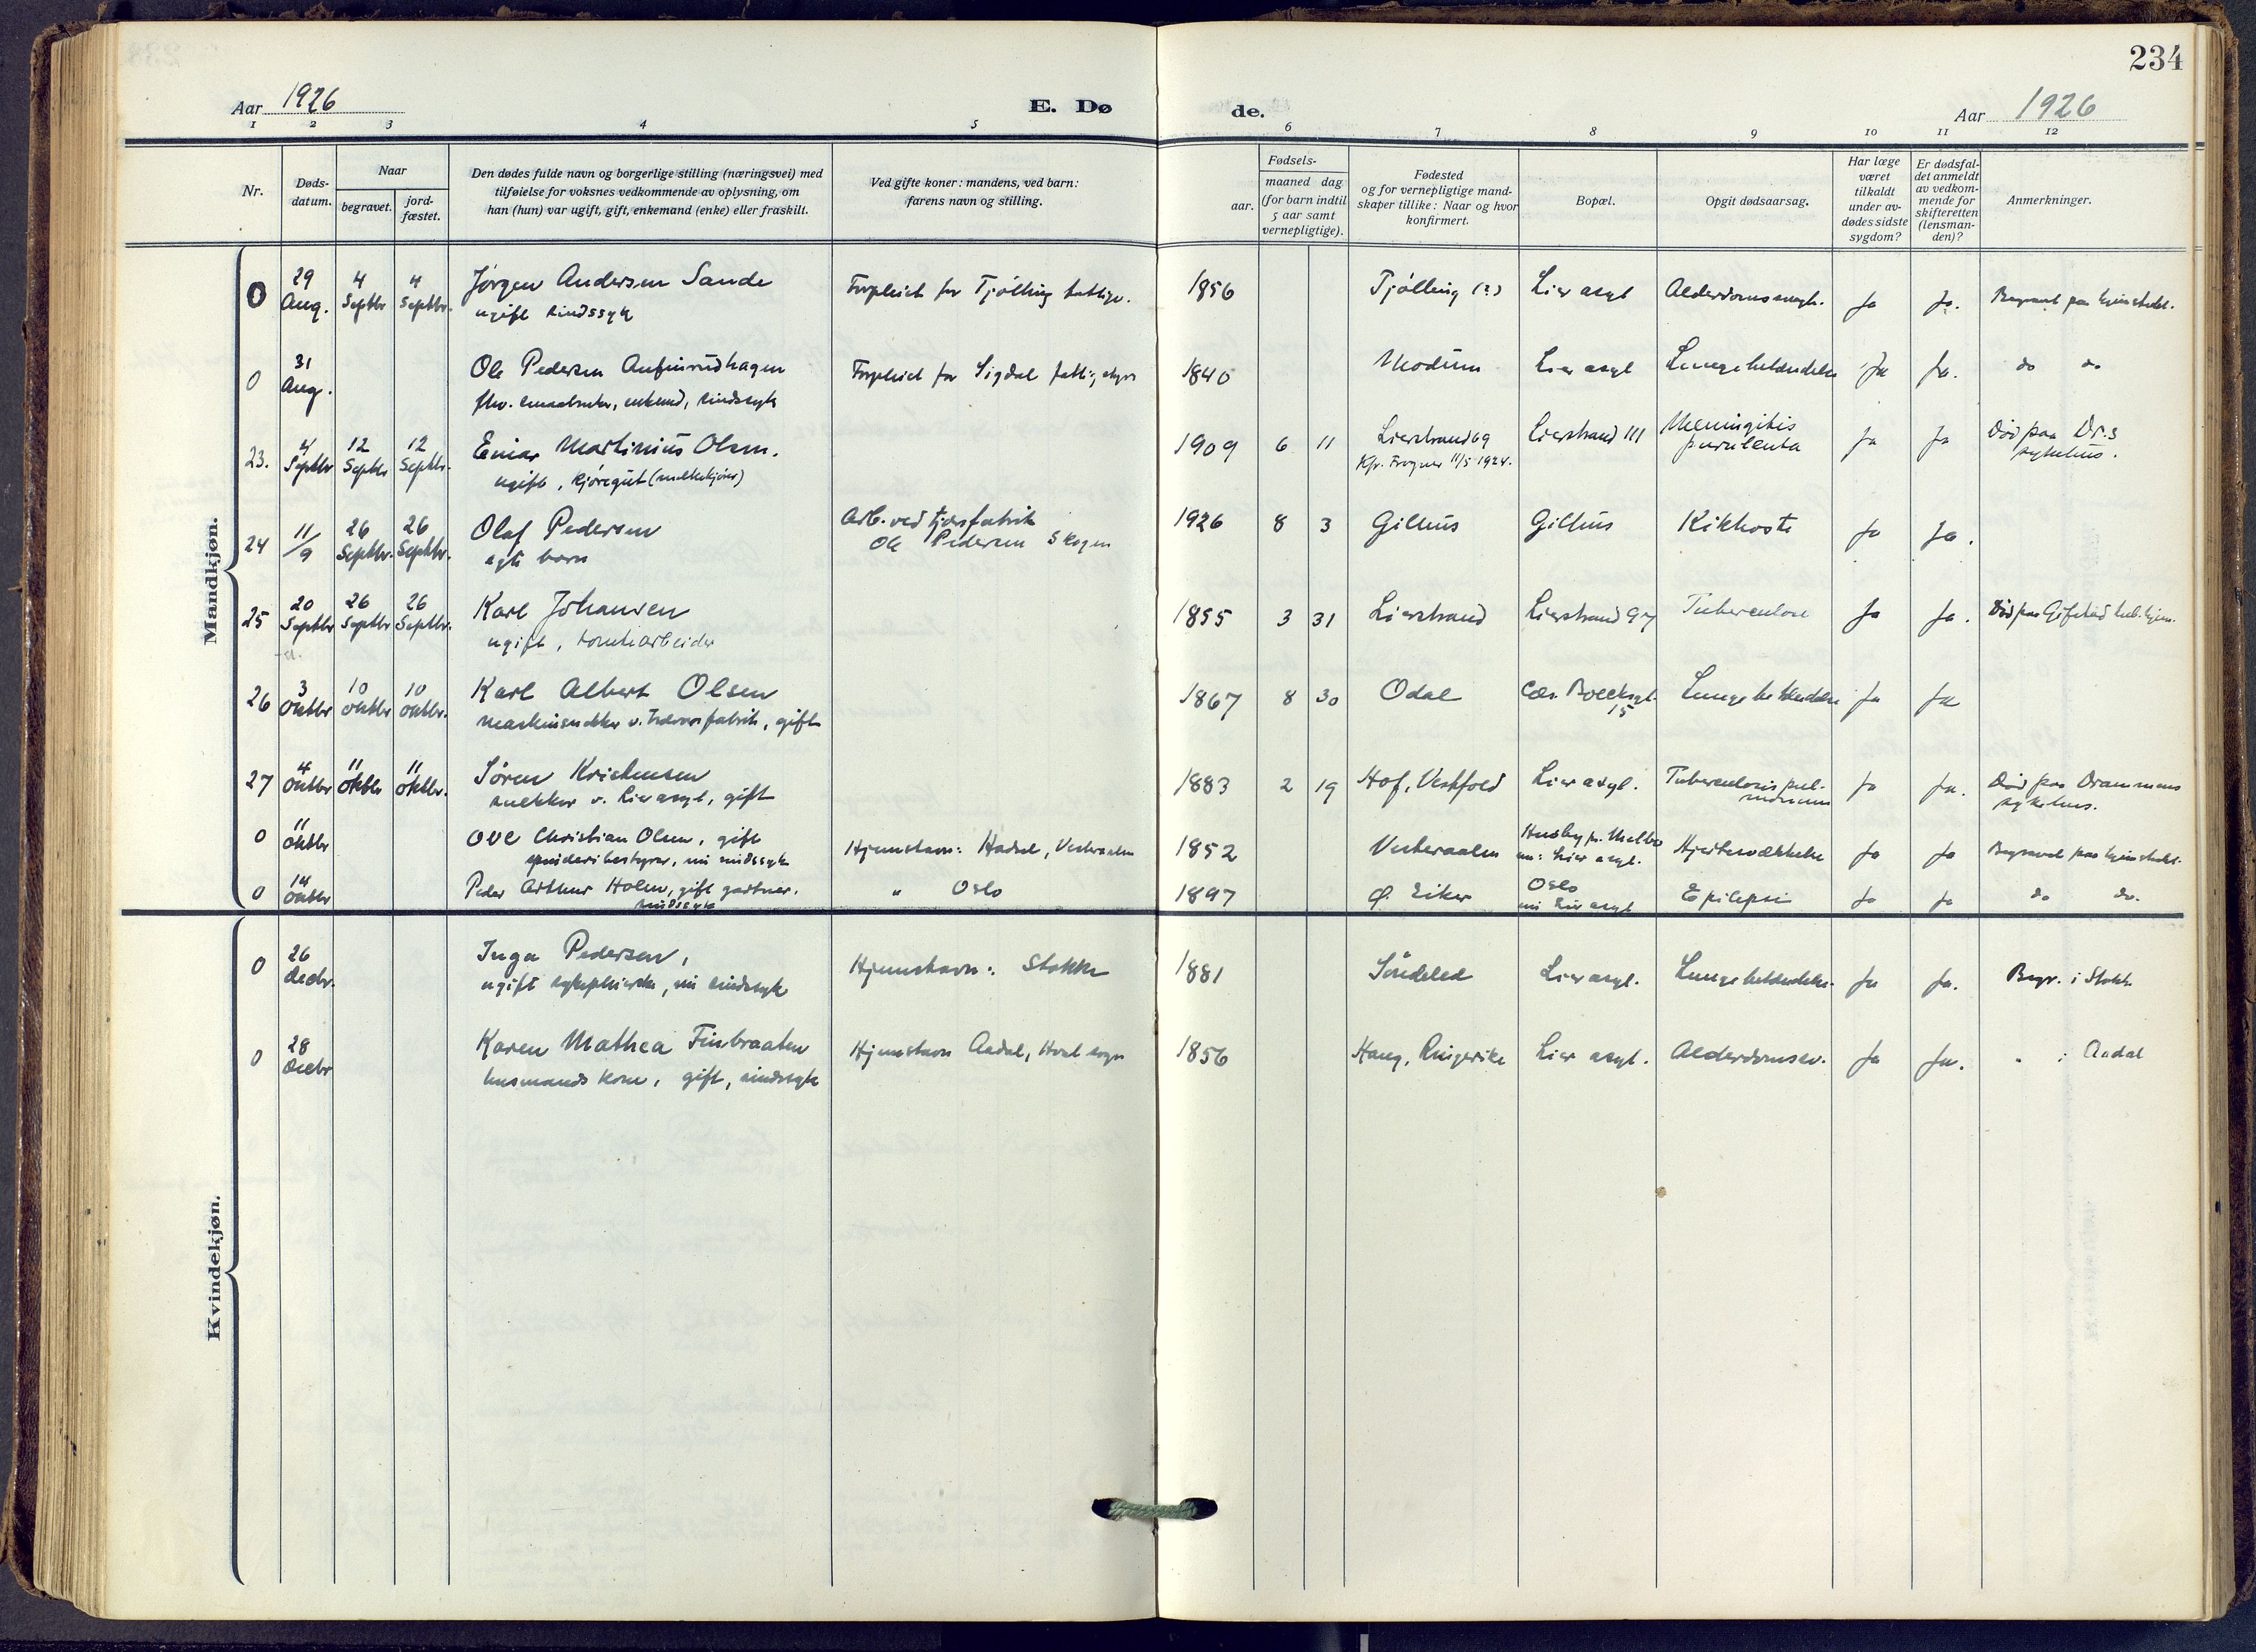 234
Aar 1926
E. Dø
de.
Aar 1926
1 2 3 4 5 6 7 8 9 10 11 12
Nr.
Døds-
datum.
Naar
begravet.
jord-
fæstet.
Den dødes fulde navn og borgerlige stilling (næringsvei) med
tilføielse for voksnes vedkommende av oplysning, om
han (hun) var ugift, gift, enkemand (enke) eller fraskilt.
Ved gifte koner: mandens, ved barn:
farens navn og stilling.
Fødsels-
aar.
maaned dag
(for barn indtil
5 aar samt
vernepligtige).
Fødested
og for vernepligtige mand-
skaper tillike: Naar og hvor
konfirmert.
Bopæl.
Opgit dødsaarsag.
Har læge
været
tilkaldt
under av-
dødes sidste
sygdom?
Er dødsfal-
det anmeldt
av vedkom-
mende for
skifteretten
(lensman-
den)?
Anmerkninger.
Mandkjøn.
0 29 Aug. 4 Septbr 4 Septbr. Jørgen Andersen Sande
ugift sindssyk
Forpleiet for Tjølling fattigv. 1856 Tjølling (?) Lier asyl Ja Ja. Begravet paa hjemstedet.
0 31 Aug. Ole Pedersen
enkemd, sindssyk
Forpleiet for Sigdal fattigstyre 1840 Modum Lier asyl Lungebetændelse Ja Ja. do do
23. 4 Septbr 12 Septbr 12 Septbr. Einar Martinius Olsen.
ugift, kjøregut (melkekjører)
1909 6 11 Lierstrand 69
Kfr. Frogner 11/5 1924.
Lierstrand 111 Meningitis
purulenta
Ja Ja Død paa Dr.s
sykehus.
24 11/9 26 Septbr. 26 Septbr. Olaf Pedersen
egte barn
Arb. ved tjærefabrik
Ole Pedersen Skogen
1926 8 3 Gilhus Gilhus Kikhoste Ja Ja.
25 20 Septbr 26 Septbr 26 Septbr. Karl Johansen
ugift, tomtearbeider
1855 3 31 Lierstrand Lierstrand 97 Tuberculose Ja Ja. Død paa Gifstad tub.hjem.
26 3 Oktbr 10 Oktbr 10 Oktbr. Karl Albert Olsen
maskinsnekker v. trævarefabrik, gift
1867 8 30 Odal Cæs. Boecksgt.
15
Lungebetændelse Ja Ja
27 4 Oktbr 11 Oktbr 11 Oktbr. Søren Kristensen
snekker v. Lier asyl, gift
1883 2 19 Hof, Vestfold Lier asyl. Tuberculosis pul-
monum
Ja Ja. Død paa Drammens
sykehus.
0 11 Oktbr Ove Christian Olsen, gift
spinderibestyrer, nu sindssyk
Hjemstavn: Hadsel, Vesteraalen 1852 Vesteraalen Husby pr. Melbo
nu: Lier asyl.
Hjertesvækkelse Ja Ja Begravet paa hjemstedet.
0 14 Oktbr Peder Arthur Holm, gift gartner.
sindssyk
" Oslo 1897 Ø. Eiker Oslo
nu Lier asyl
Epilepsi Ja Ja do do.
Kvindekjøn.
0 26 Decbr. Inga Pedersen,
ugift sykepleierske, nu sindssyk
Hjemstavn: Stokke 1881 Søndeled Lier asyl. Lungebetændelse. Ja Ja. Begr. i Stokke
0 28 Decbr Karen Mathea Finbraaten
husmands kone, gift, sindssyk
Hjemstavn Aadal, Hval sogn 1856 Haug, Ringerike Lier asyl. Alderdomssv. Ja Ja. " i Aadal